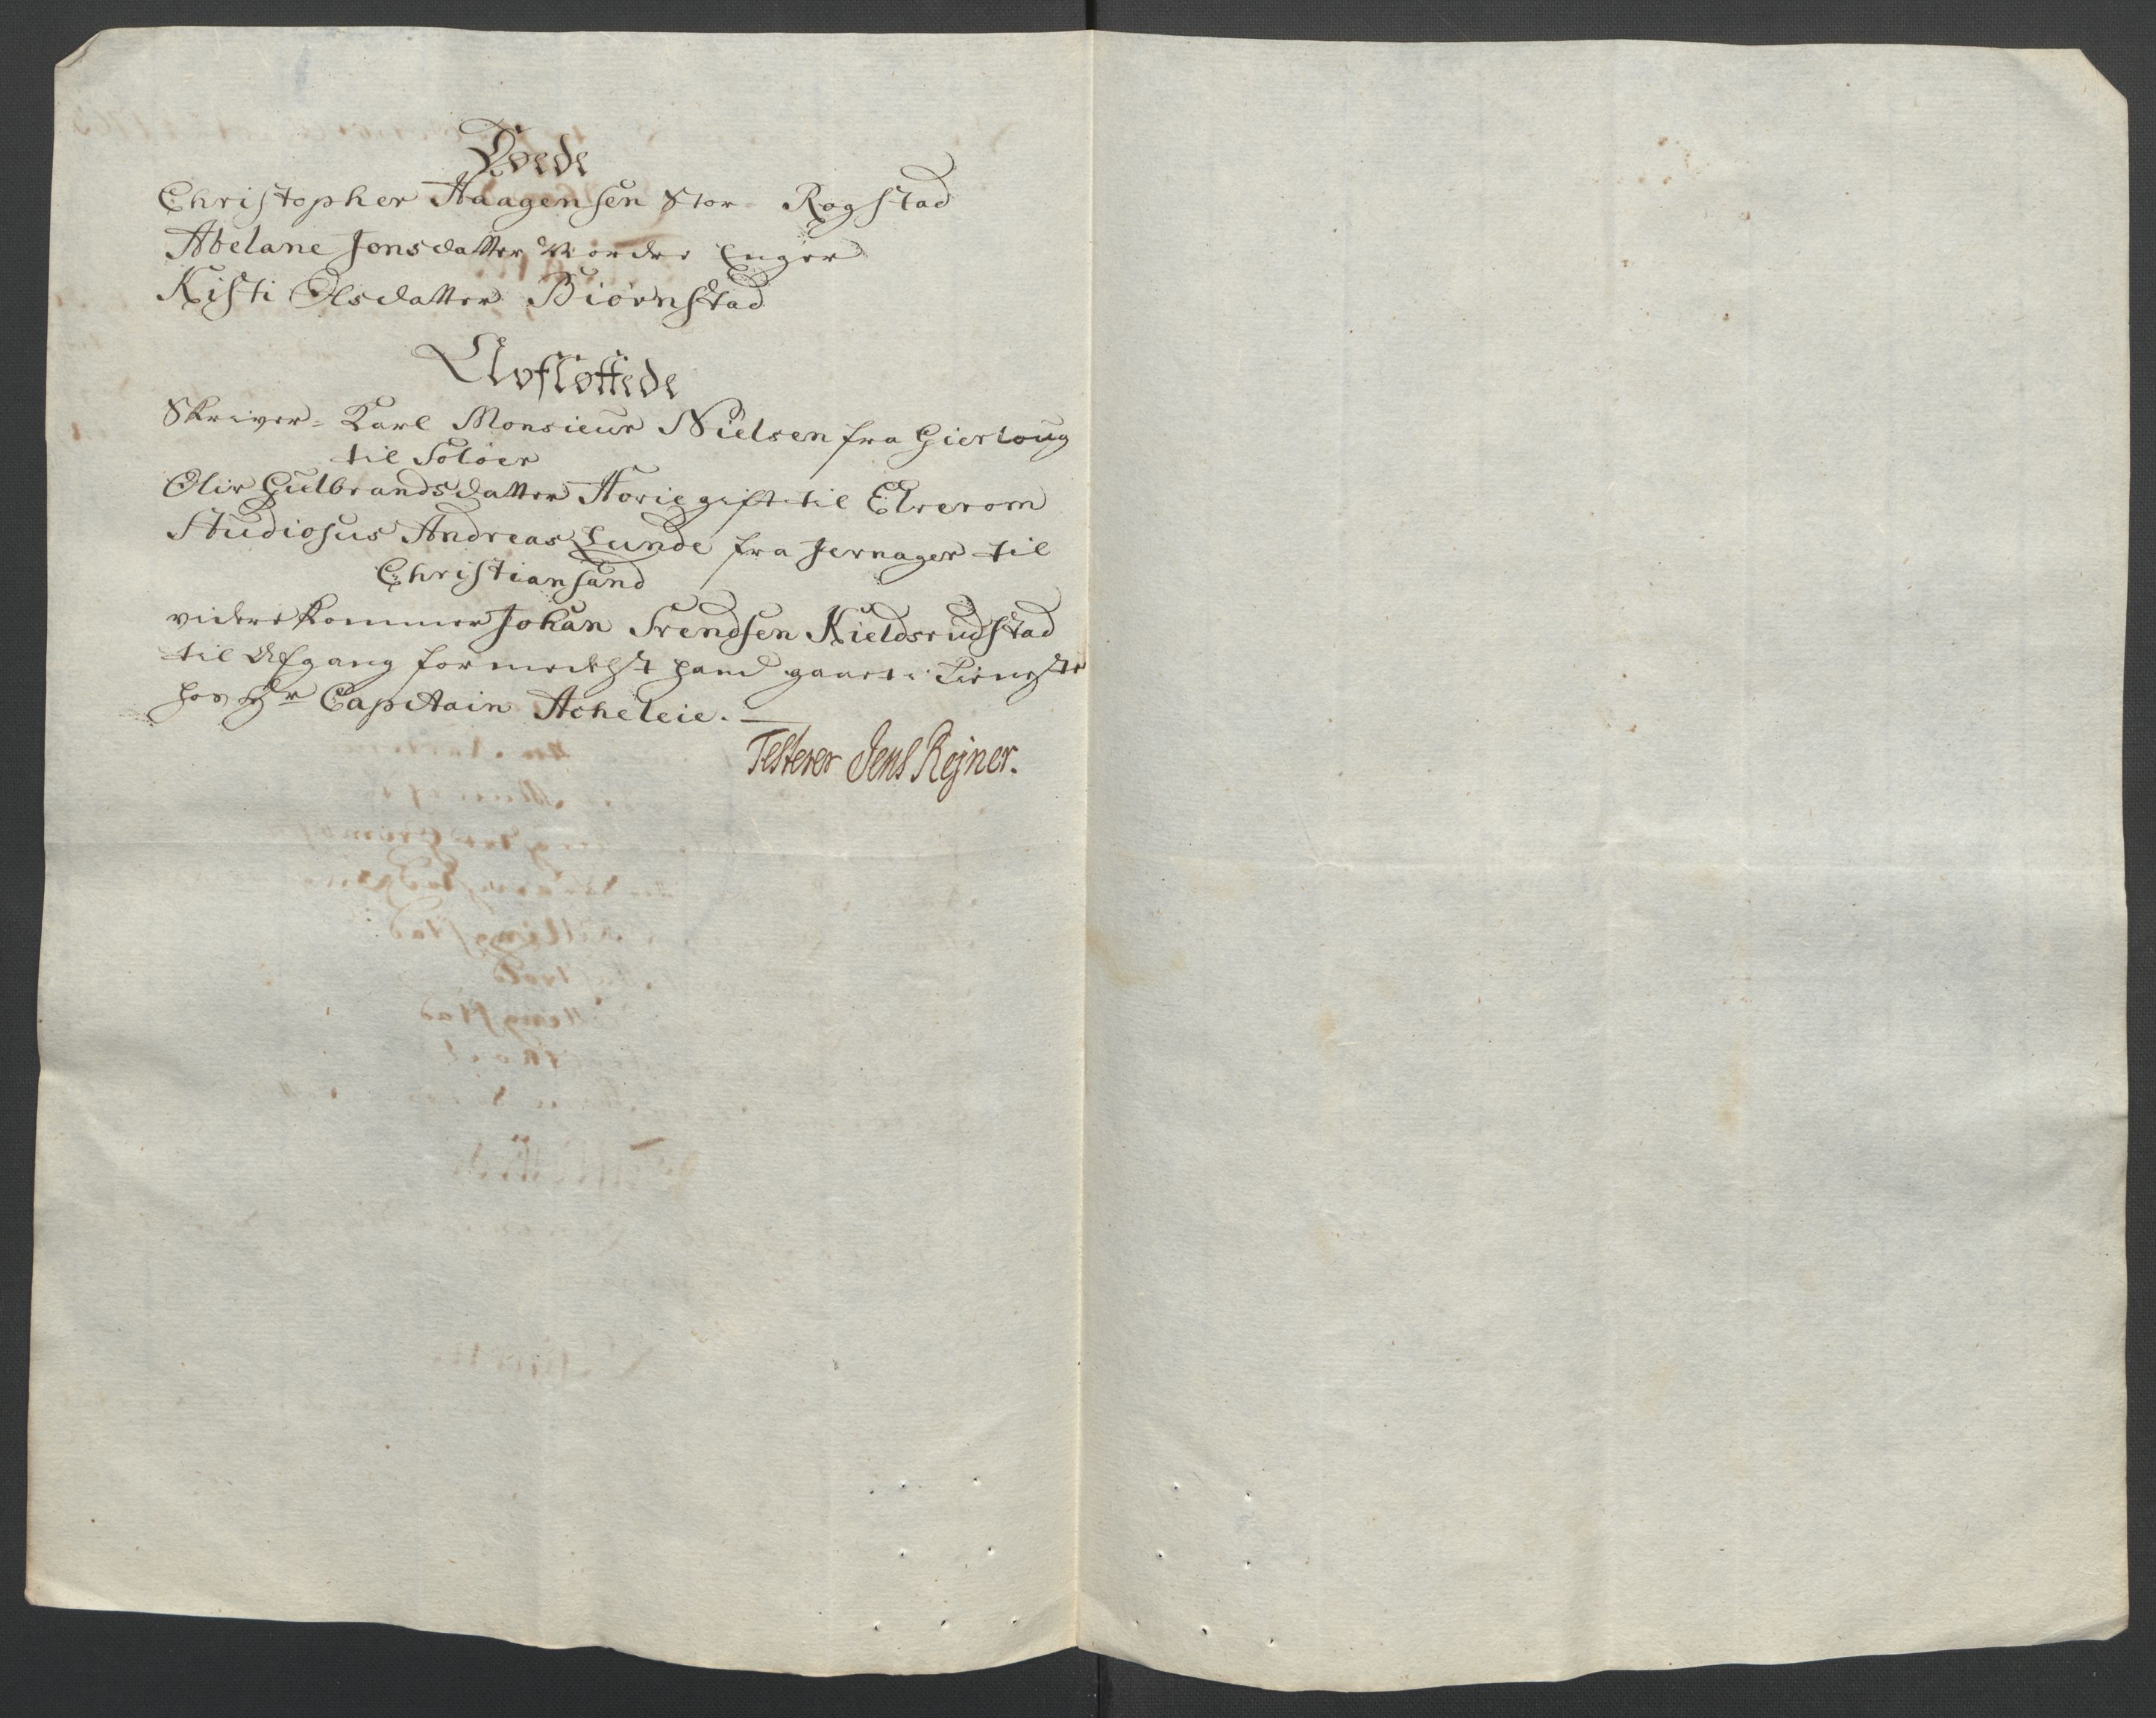 Døede
Christopher Haagensen Stor Rogstad
Abelane Jonsdatter Nordre Enger
Kisti Olsdatter Biørnstad
Udfløttede
Skriver- Karl Monsieur Nielsen fra Gierloug
til Soløer
Olir Gulbrandsdatter Horie gift til Elverom
Studiosus Andreas Lunde fra Jernager til
Christiansand
videre kommer Johan Svendsen Kieldsrudstad
til Afgang formedelst hand gaaet i Tieneste
hos Hr Capitain Acheleie.
Testerer Jens Rejner.